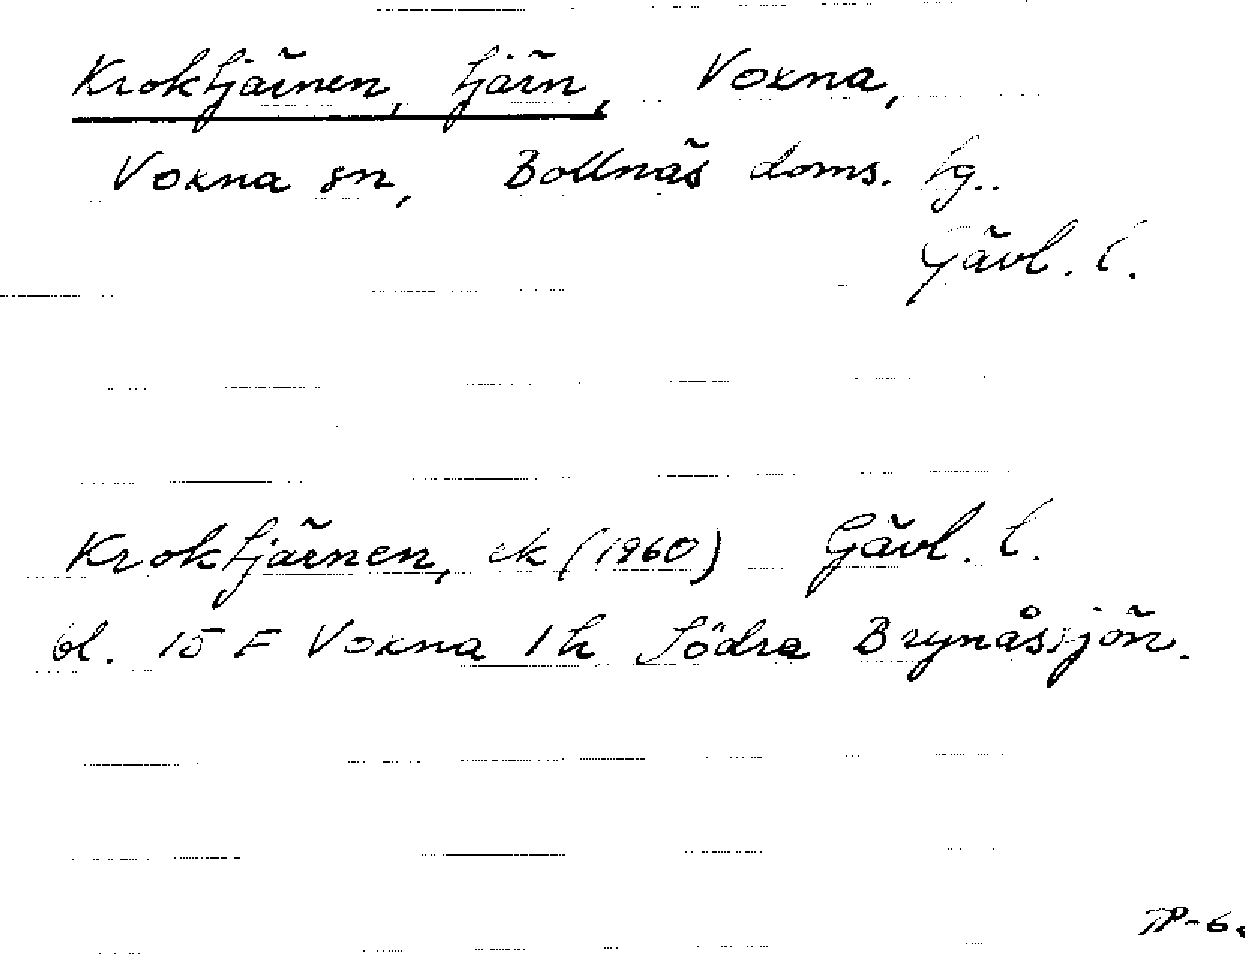 Kroktjärnen, tjärn, Voxna,
Voxna sn, Bollnäs doms. tg..
Gävl. l.
Kroktjärnen, ek (1960) Gävl. l.
bl. 15 F Voxna 1 h Södra Brynåssjön.